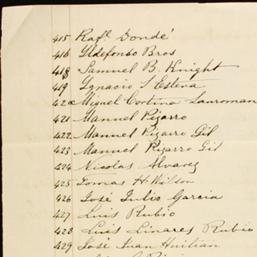 415 Rafl. Dondé
416 Yldefonso Bros
418 Samuel B. Knight
419 Ygnacio S Esteva
420 Miguel Cortina
421 Manuel Pizarro
422 Manuel Pizarro Gil
423 Manuel Pizarro Gil
424 Nicolas Alvarez
425 Tomas H Wilson
426 José Julio Garcia
427 Luis Rubio
428 Luis Linares Rubio
429 José Juan